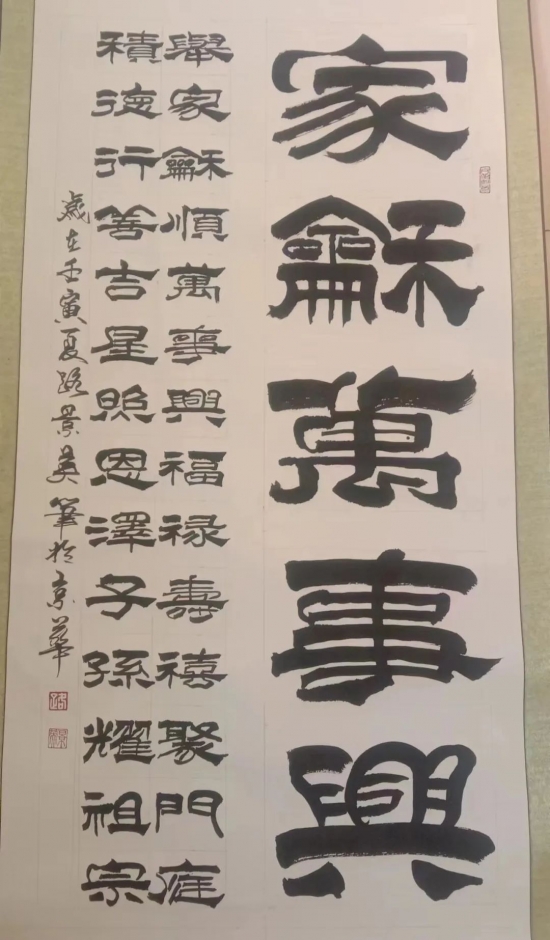 家龢萬事興
舉家龢順萬事興福禄壽禧聚門庭
積德行善吉星照恩澤子孫耀祖宗
歲在壬寅夏路景英筆於京華